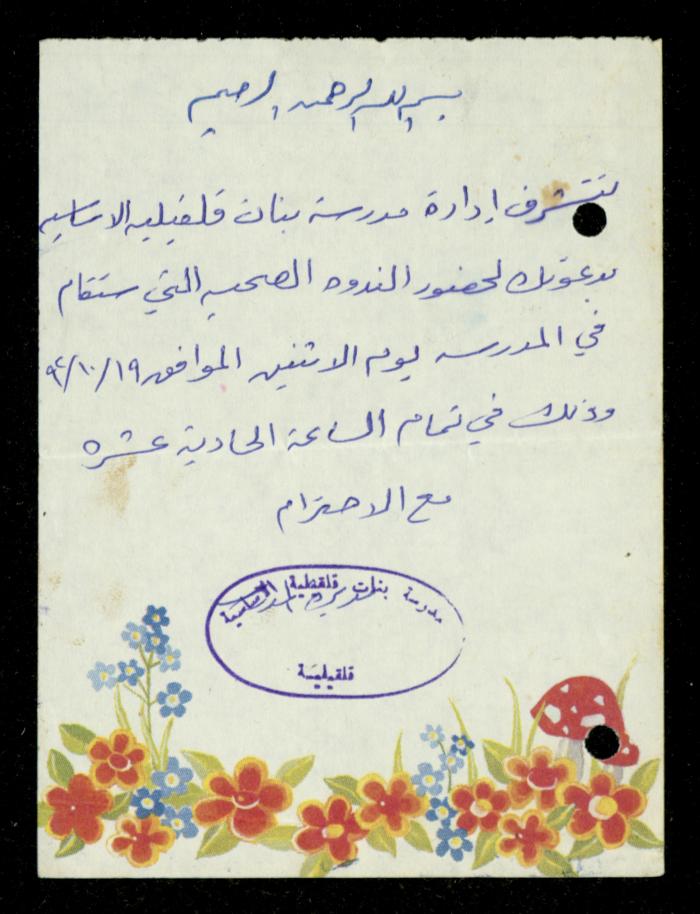 بسم الله الرحمن الرحيم
تتشرف إدارة مدرسة بنات قلقيليه الاساسيه
بدعوتك لحضور الندوه الصحيه التي ستقام
في المدرسه يوم الاثنين الموافق ١٩/١٠/٩٤
وذلك في تمام الساعة الحادية عشره
مع الاحترام
مدرسة بنات قلقيلية الاساسية
قلقيليّة